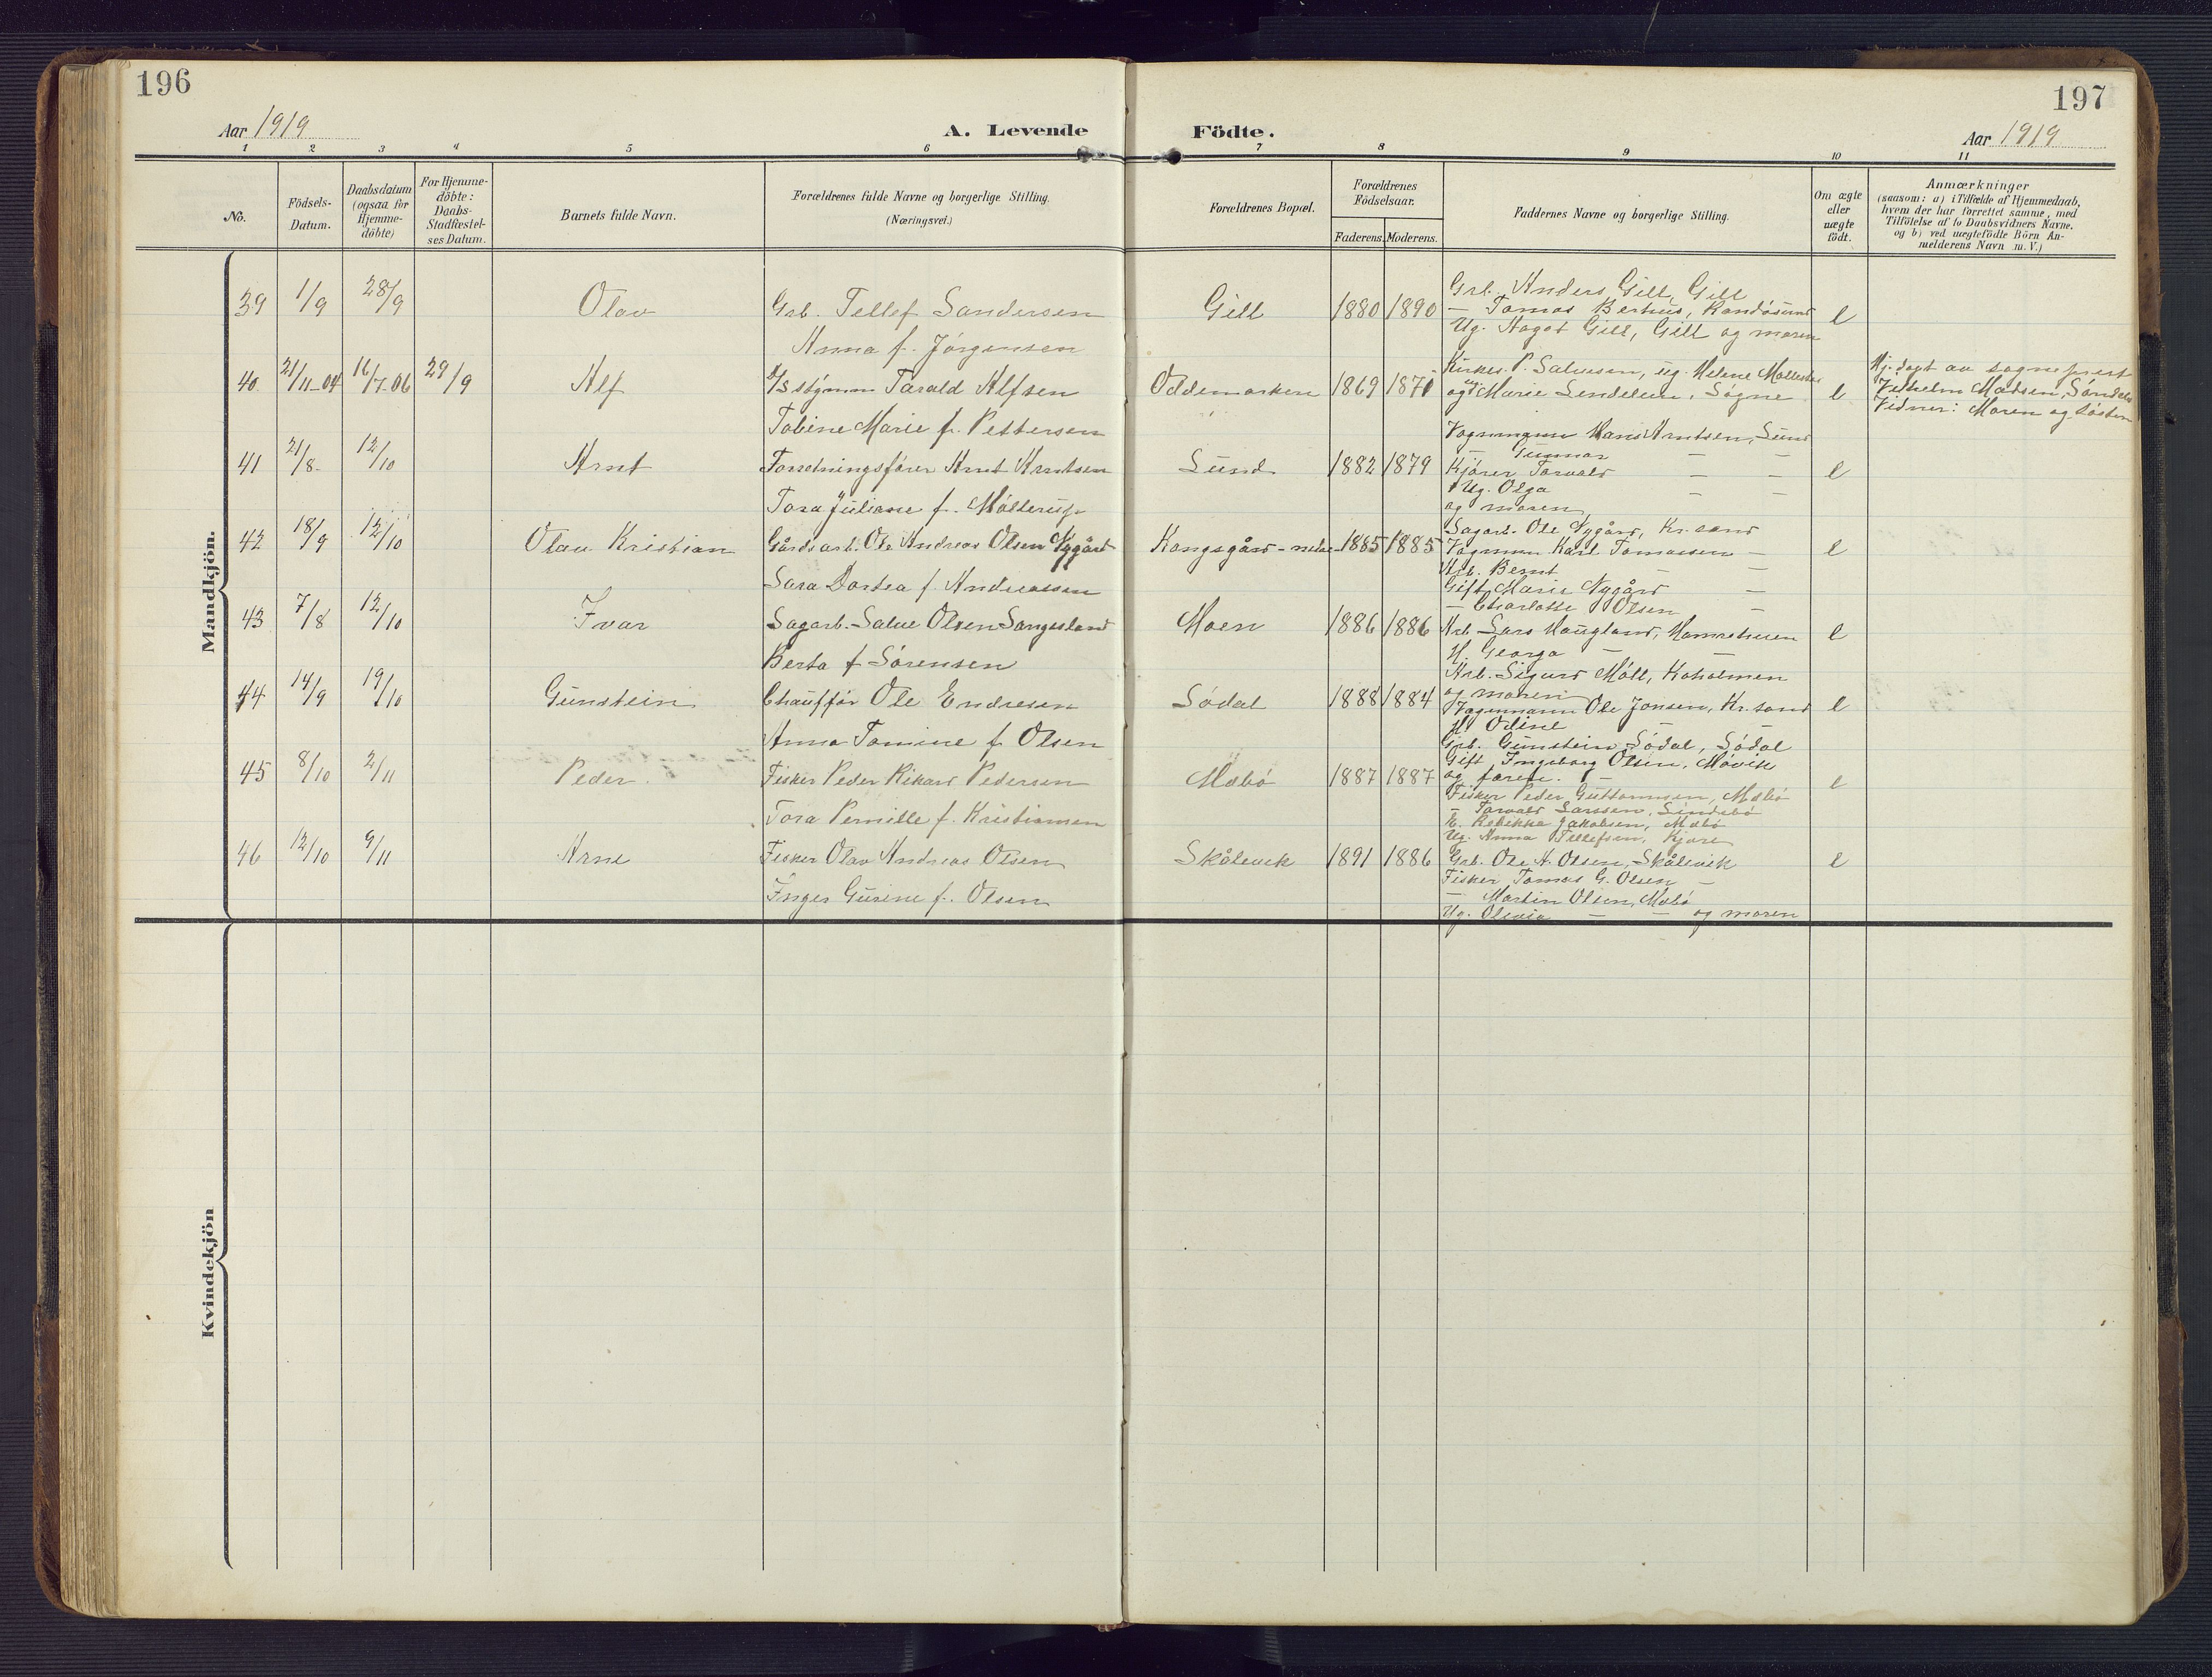 196
197
Aar 1919
A. Levende Födte.
Aar 1919
1 2 3 4 5 6 7 8 9 10 11
No.
Födsels-Datum.
Daabsdatum (ogsaa for Hjemme-döbte)
For Hjemme-döbte: Daabs-Stadfæstel-ses Datum.
Barnets fulde Navn.
Forældrenes fulde Navne og borgerlige Stilling.
(Næringsvei.)
Forældrenes Bopæl.
Forældrenes Födselsaar.
Faderens. Moderens.
Faddernes Navne og borgerlige Stilling.
Om ægte eller uægte födt.
Anmærkninger
(saasom: a) i Tilfælde af Hjemmedaab,
hvem der har forrettet samme, med
Tilföielse af to Daabsvidners Navne.
og b) ved uægtefödte Börn An-
melderens Navn m. V.)
Mandkjön.
39 1/9 28/9 Olav Grb. Tellef Sandersen Gill 1880 1890 e
Anna f. Jörgensen
Grb. Anders Gill, Gill
— Tomas Berhus, Randösund
Ug. Aagot Gill, Gill og moren
40 21/11-04 16/7-06 29/9 Alf D/S stýrm Tarald Alfsen Oddemarken 1869 1871 e
Tobine Marie f. Pettersen
Kirkes. P. Salvesen, ug. Helene
og Marie Lendelum, Søgne
Hj. døpt av sogneprest
Vilhelm Madsen, Søndeled
Vidner: Moren og søster
41 21/8 12/10 Arnt Forretningsfører Arnt Arntsen Lund 1882 1879 e
Tora Juliane f. Møllerup
Vognmann Hans Arntsen, Lund
— Gunnar — —
Kjører Torvald — —
Ug. Olga — —
og moren
42 18/9 12/10 Olav Kristian Gårdsarb. Ole Andreas Olsen Nygård Kongsgård 1885 1885 e
Sara Dortea f. Andreassen
Sagarb. Ole Nygård, Kr.sand
Vognmann Karl Tomassen —
Arb. Bernt — —
Gift Marie Nygård —
— Charlotte Olsen —
43 7/8 12/10 Ivar Sagarb. Salve Olsen Sangesland Moen 1886 1886 e
Berta f Sørensen
Arb Lars Haugland, Hamresheien
H. Georga —
Arb. Sigurd Moll, Koholmen
og moren
44 14/9 19/10 Gunstein Chauffør Ole Endresen Sødal 1888 1884 e
Anna Tomine f. Olsen
Vognmann Ole Jonsen, Kr.sand
H. Odine — —
Grb. Gunstein Sødal, Sødal
Gift Ingeborg Olsen, Møvik
og faren. —
45 8/10 2/11 Peder Fisker Peder Rikard Pedersen Mæbø 1887 1887 e
Tora Pernille f. Kristiansen
Fisker Peder Guttormsen, Mæbø
— Torvald Larssen, Lindebø
E. Rebekka Jakobsen, Mæbø
Ug. Anna Tellefsen, Kjøre
46 12/10 9/11 Arne Fisker Olav Andreas Olsen Skålevik 1891 1886 e
Inger Gurine f. Olsen
Grb. Ole A. Olsen, Skålevik
Fisker Tomas G. Olsen —
— Martin Olsen, Mæbø
Ug. Olivia — — og moren
Kvindekjön